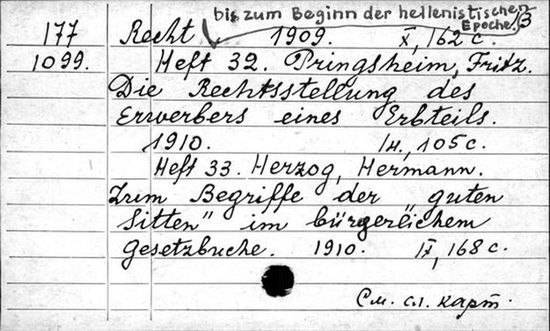 bis zum Beginn der hellenistischen
Epoche. 3
177 Recht 1909. X, 162 c.
1099. Heft 32. Pringsheim, Fritz.
Die Rechtsstellung des
Erwerbers eines Erbteils.
1910. 105 c.
Heft 33. Herzog, Hermann.
Zum Begriffe der "guten
Sitten" im bürgerlichem
Gesetzbuche. 1910. IX, 168 c.
См. сл. карт.